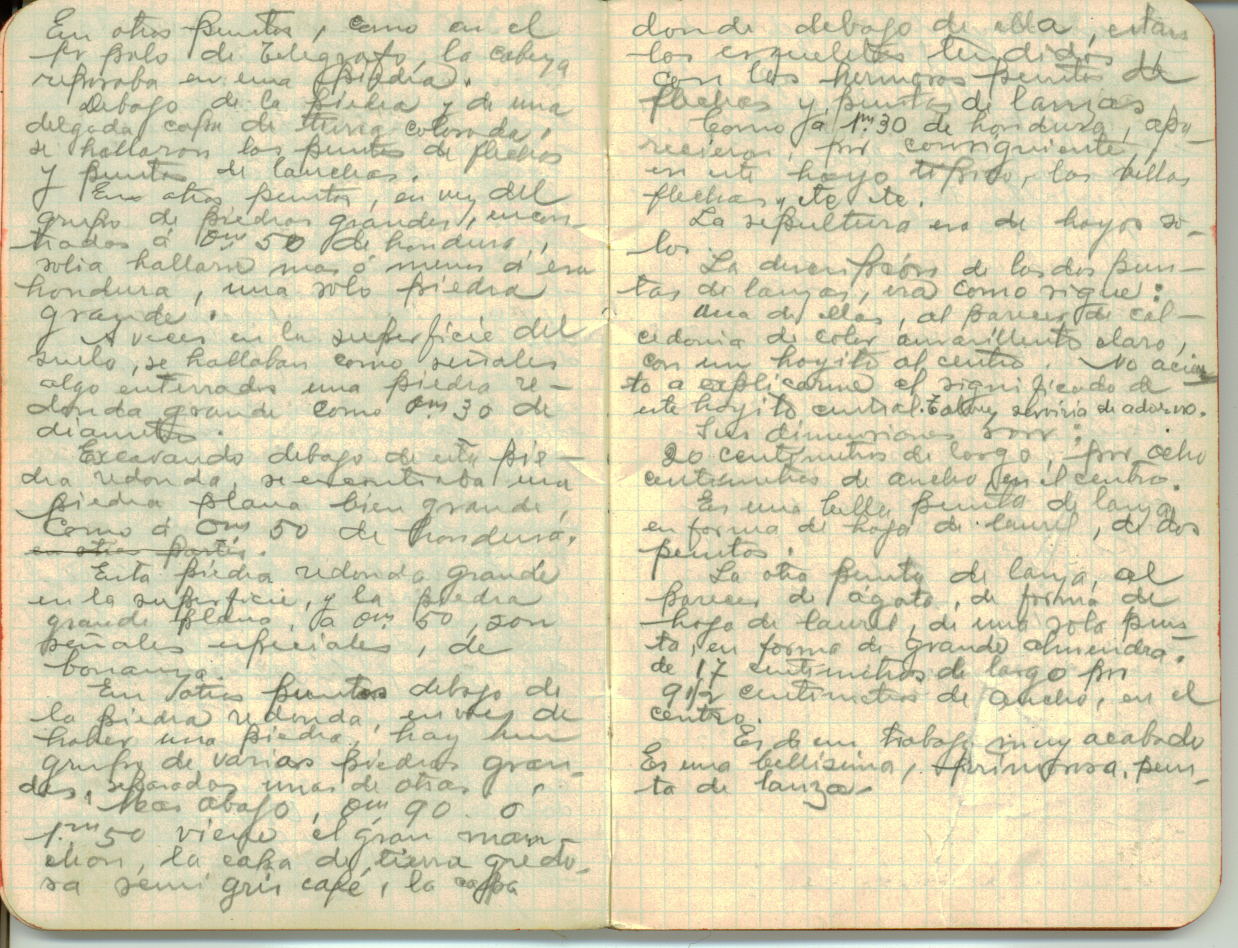 En otros puntos, como en el
palo de Telegrafo, la cabeza
reposaba en una piedra.
Debajo de la piedra y de una
delgada capa de tierra colorada,
se hallaron las puntas de flechas
y puntas de lanchas.
En otros puntos, en vez del
grupo de piedras grandes, encon-
trados á 0m 50 de hondura,
solia hallarse mas ó menos á esa
hondura, una sola piedra
grande.
A veces en la superficie del
suelo, se hallaban como señales
algo enterrados una piedra re-
donda grande como 0m 30 de
diametro.
Excavando debajo de esta pie-
dra redonda, se encontraba una
piedra plana bien grande,
Como á 0m 50 de hondura.
en otras partes.
Esta piedra redonda grande
en la superficie, y la piedra
grande plana, á 0m 50, son
señales, de
bonanza.
En otros puntos debajo de
la piedra redonda, en vez de
haber una piedra, hay un
grupo de varias piedras gran-
des, separadas unas de otras,
Mas abajo, 0m 90 o
1.m 50 viene el gran man-
chon, la capa de tierra gredo-
sa semi gris café, la capa
donde debajo de ella, estan
los esqueletos tendidos
con las hermosas puntas de
flechas y puntas de lanzas
Como á 1m.30 de hondura, apa-
recieron, por consiguiente
en este hoyo tipico, las bellas
flechas, etc etc.
La sepultura era de hoyos so-
los.
La descripción de las dos pun-
tas de lanzas, era como sigue:
Una de ellas, al parecer de cal-
cedonia de color amarillento claro,
con un hoyito al centro. No acier-
to a explicarme el significado de
este hoyito central. Talvez serviria de adorno.
Sus dimensiones son:
20 centimetros de largo, por ocho
centimetros de ancho en el centro.
Es una bella punta de lanza
en forma de hoja de laurel, de dos
puntas.
La otra punta de lanza, al
parecer de agata, de forma de
hoja de laurel, de una sola pun-
ta, en forma de grande almendra.
de 17 centimetros de largo por
9 1/2 centimetros de ancho, en el
centro.
Es de un trabajo muy acabado
Es una bellisima, primorosa, pun-
ta de lanza.